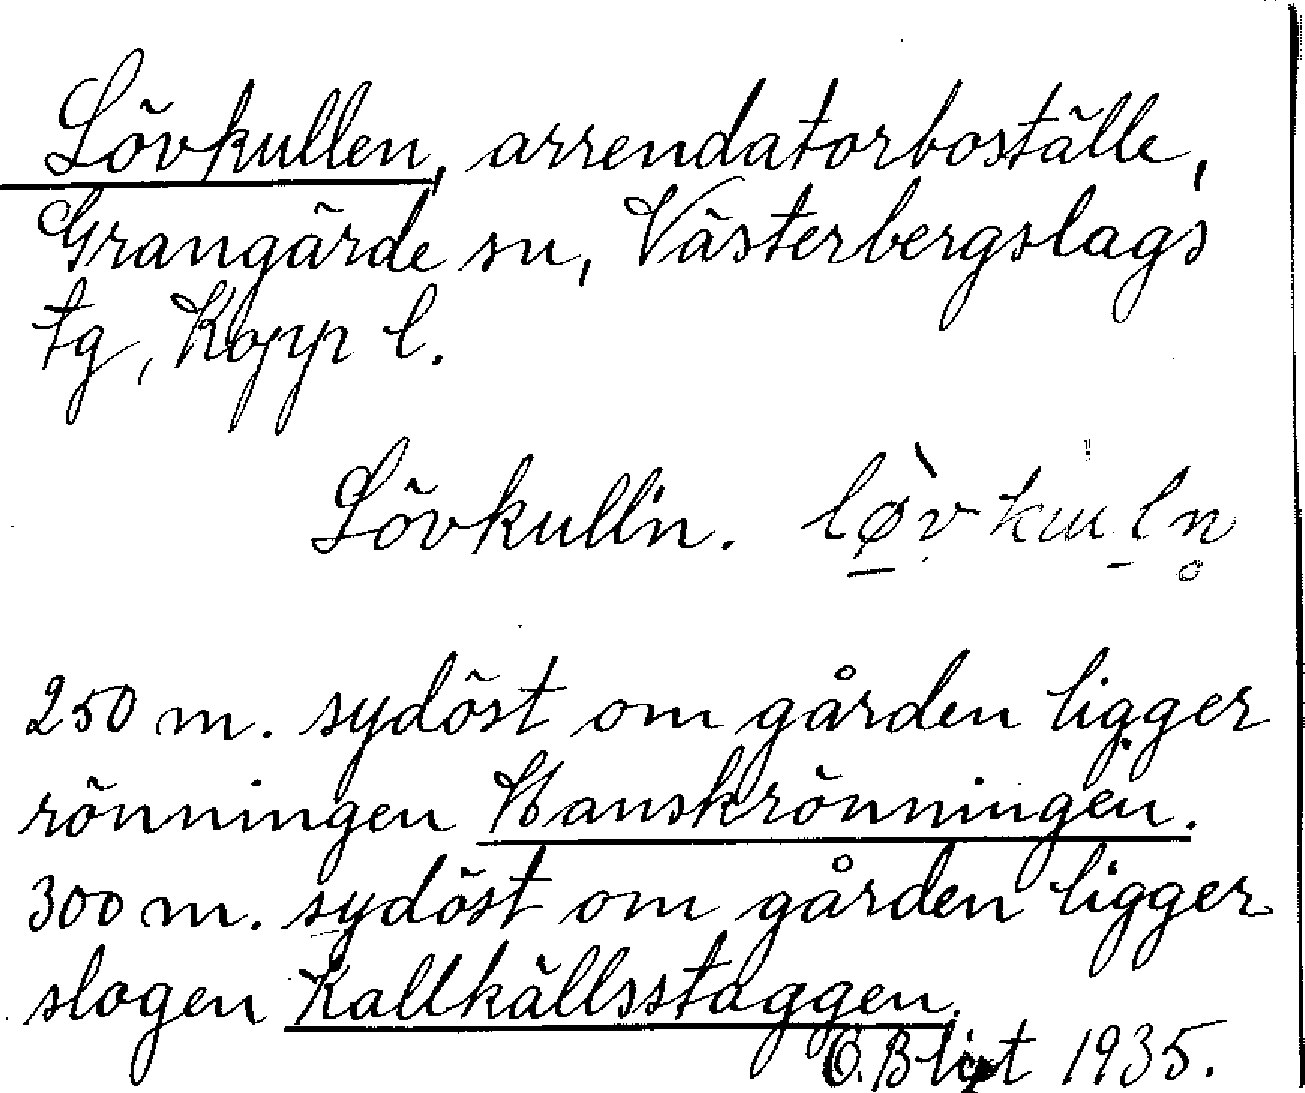 Lövkullen, arrendatorboställe,
Grangärde sn, Västerbergslags
tg, Kopp l.
Lövkull'n. lø̀vkuln̥
250 m. sydöst om gården ligger
rönningen Hanskrönningen.
300 m. sydöst om gården ligger
slogen Kallkällsstaggen.
O. Blixt 1935.